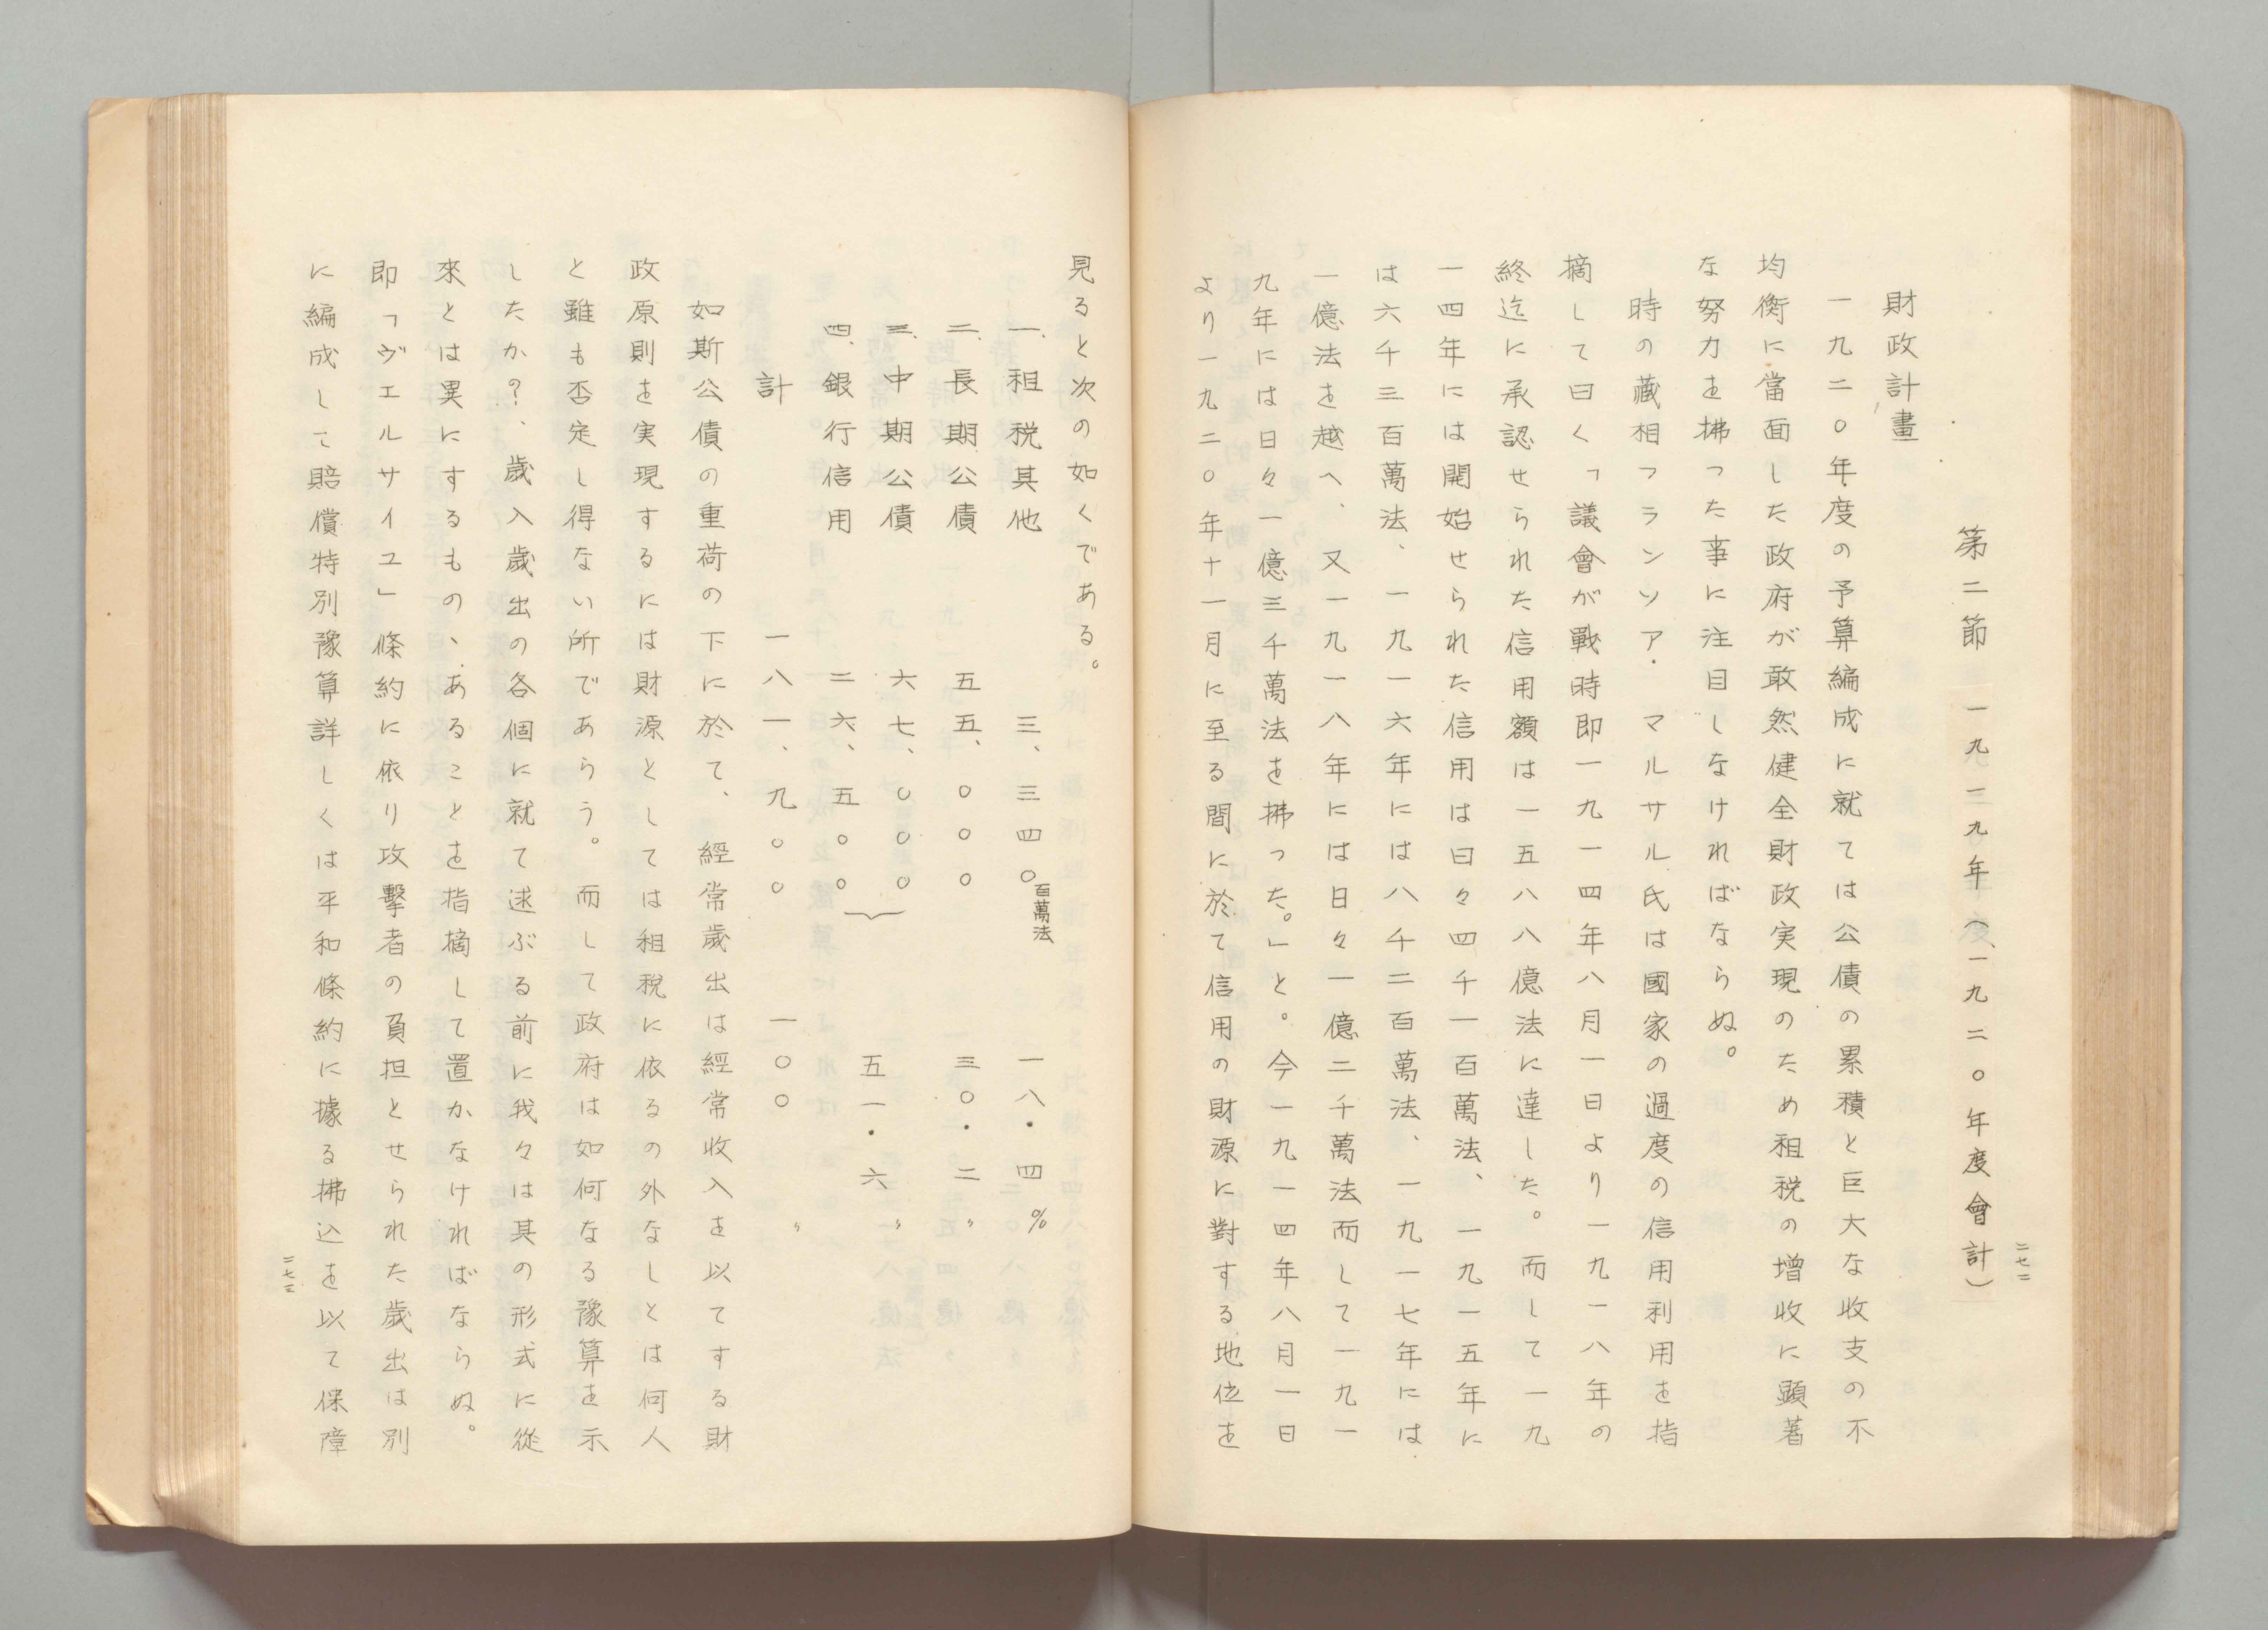 第二節　一九一九年（一九二〇年度會計）
財政計畫
一九二〇年度の予算編成に就ては公債の累積と巨大な收支の不
均衡に當面した政府が敢然健全財政実現のため租税の増收に顕著
な努力を拂った事に注目しなければならぬ。
時の蔵相フランソア・マルサル氏は國家の過度の信用利用を指
摘して曰く「議會が戰時即一九一四年八月一日より一九一八年の
終迄に承認せられた信用額は一五八八億法に達した。而して一九
一四年には開始せられた信用は日々四千一百萬法、一九一五年に
は六千三百萬法、一九一六年には八千二百萬法、一九一七年には
一億法を越へ、又一九一八年には日々一億二千萬法而して一九一
九年には日々一億三千萬法を拂った。」と。今一九一四年八月一日
より一九二〇年十一月に至る間に於て信用の財源に對する地位を
二七二
見ると次の如くである。
一、租税其他　三三、三四〇百萬法　一八・四％
二、長期公債　五五、〇〇〇　三〇・二〃
三、中期公債　六七、〇〇〇
四、銀行信用　二六、五〇〇　五一・六〃
計　一八一、九〇〇　一〇〇〃
如斯公債の重荷の下に於て、經常歲出は經常收入を以てする財
政原則を実現するには財源としては租税に依るの外なしとは何人
と雖も否定し得ない所であらう。而して政府は如何なる豫算を示
したか？、歲入歲出の各個に就て述ぶる前に我々は其の形式に從
來とは異にするもの、あることを指摘して置かなければならぬ。
即「ヴェルサイユ」條約に依り攻擊者の負担とせられた歲出は別
に編成して賠償特別豫算詳しくは平和條約に據る拂込を以て保障
二七三